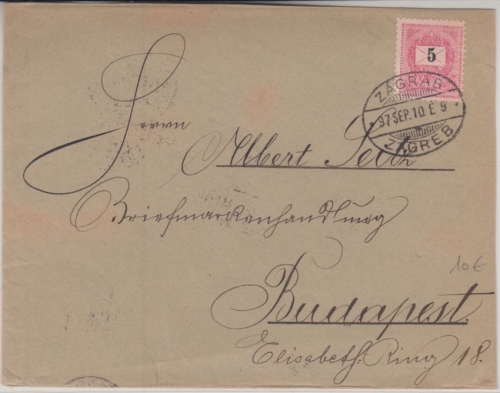 5
ZÁGRÁB
97 SEP. 10. E 9
ZAGREB
Herrn
Albert Seltz
Briefmarkenhandlung
Budapest.
Elisabeth-Ring 18.
10€